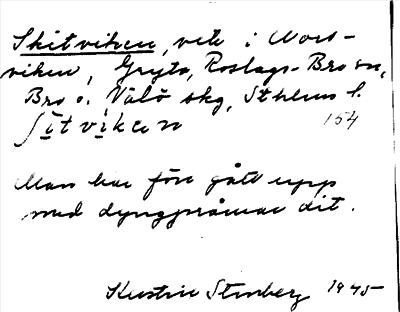 Skitviken, vik i Norr-
viken, Gryta, Roslags-Bro sn,
Bro o. Vätö skg, Sthlms l.
ʃi̱tvi̱ken 154
Man har förr gått upp
med dyngpråmar dit.
Kerstin Stenberg 1945